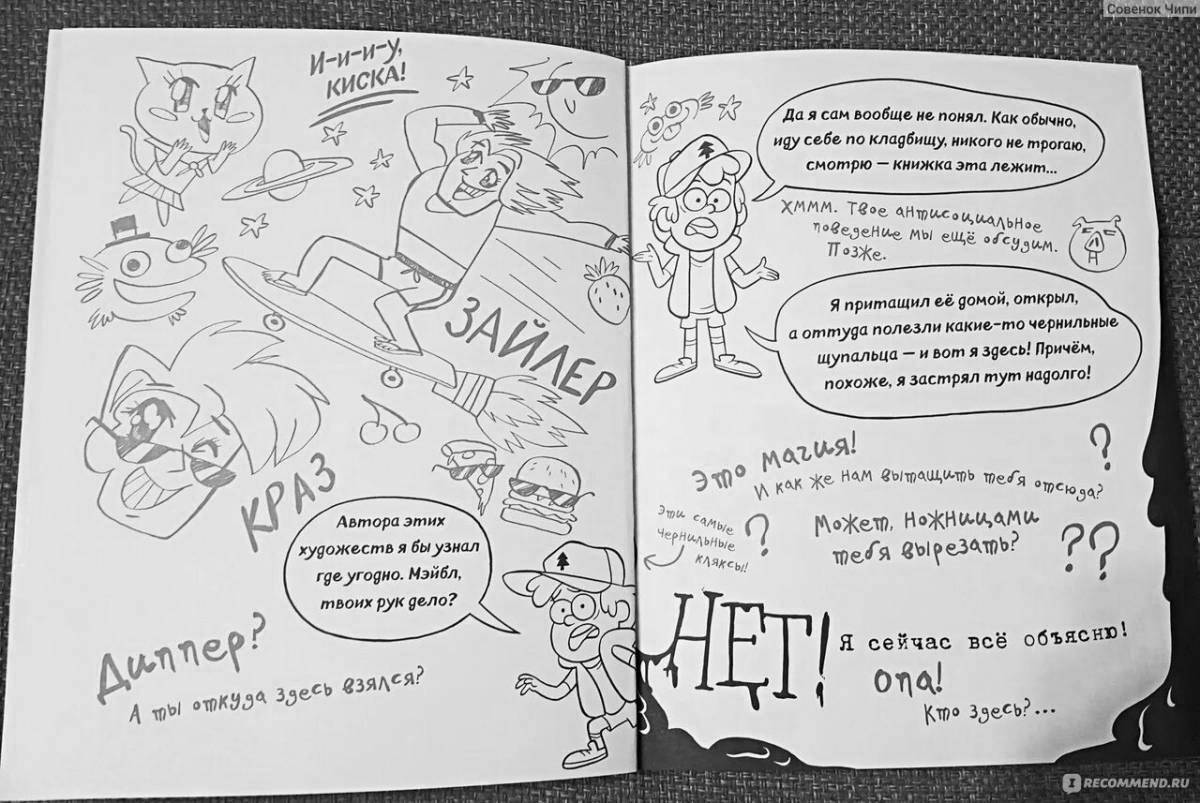 Совенок Чипи
И-и-и-у,
КИСКА!
ЗАЙЛЕР
КРАЗ
Автора этих
художеств я бы узнал
где угодно. Мэйбл,
твоих рук дело?
Диппер?
А ты откуда здесь взялся?
Да я сам вообще не понял. Как обычно,
иду себе по кладбищу, никого не трогаю,
смотрю — книжка эта лежит...
Хммм. Твое антисоциальное
поведение мы ещё обсудим.
Позже.
Я притащил её домой, открыл,
а оттуда полезли какие-то чернильные
щупальца — и вот я здесь! Причём,
похоже, я застрял тут надолго!
Это магия!
И как же нам вытащить тебя отсюда?
?
Эти самые
чернильные
кляксы!
?
Может, ножницами
тебя вырезать?
??
НЕТ!
Я сейчас всё объясню!
Опа!
Кто здесь?...
RECOMMEND.RU